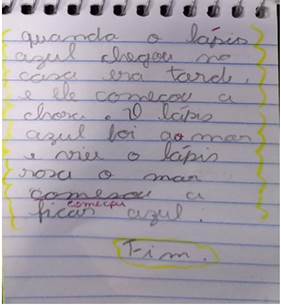 quando o lápis
azul chegou na
casa era tarde,
e ele começou a
chora. O lápis
azul foi ao mar
e viu o lápis
rosa o mar
comesou a
começou
ficar azul.
Fim.